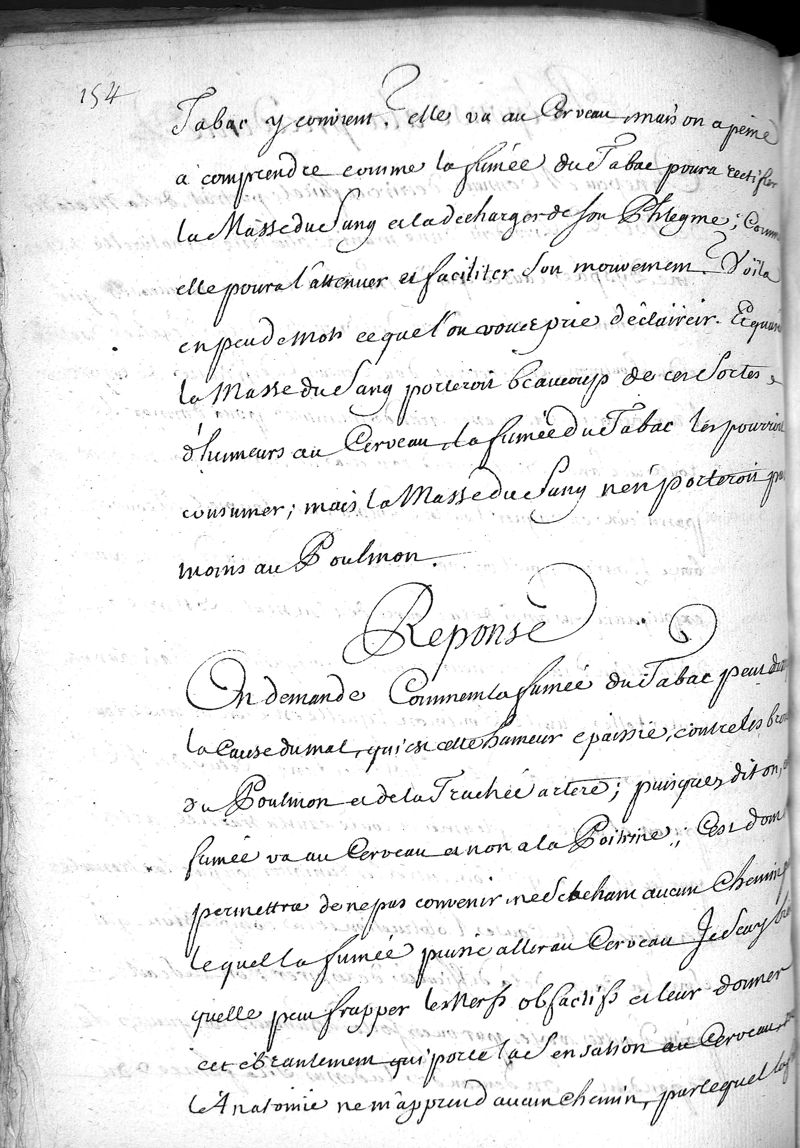 154
Tabac y convient? elle va au Cerveau, mais on a peine
a comprendre comme la fumée du Tabac poura rectifier
la Masse du Sang et la decharger de son Phlegme; Comm
elle poura l'attenuer et faciliter son mouvement? Voila
en peu de mots ce que l'on vous prie d'éclaircir. Et quan
la Masse du Sang porteroit beaucoup de ces Sortes
d'humeurs au Cerveau, la fumée du Tabac les pourroit
consumer; mais la Masse du Sang n'en porteroit pas
moins au Poulmon.
Reponse
On demande Comment la fumée du Tabac peut
la Cause du mal, qui est cette humeur epaissie, contre les bron
du Poulmon et de la Trachée artere; puisque, dit on,
fumée va au Cerveau et non a la Poitrine; C'est dont
permettra de ne pas convenir, ne Sachant aucun Chemin
lequel la fumée puisse aller au Cerveau Je Scay
quelle peut frapper les Nerfs olfactifs et leur donner
cet ebranlement qui porte la Sensation au Cerveau,
l'Anatomie ne m'apprend aucun Chemin, par lequel la